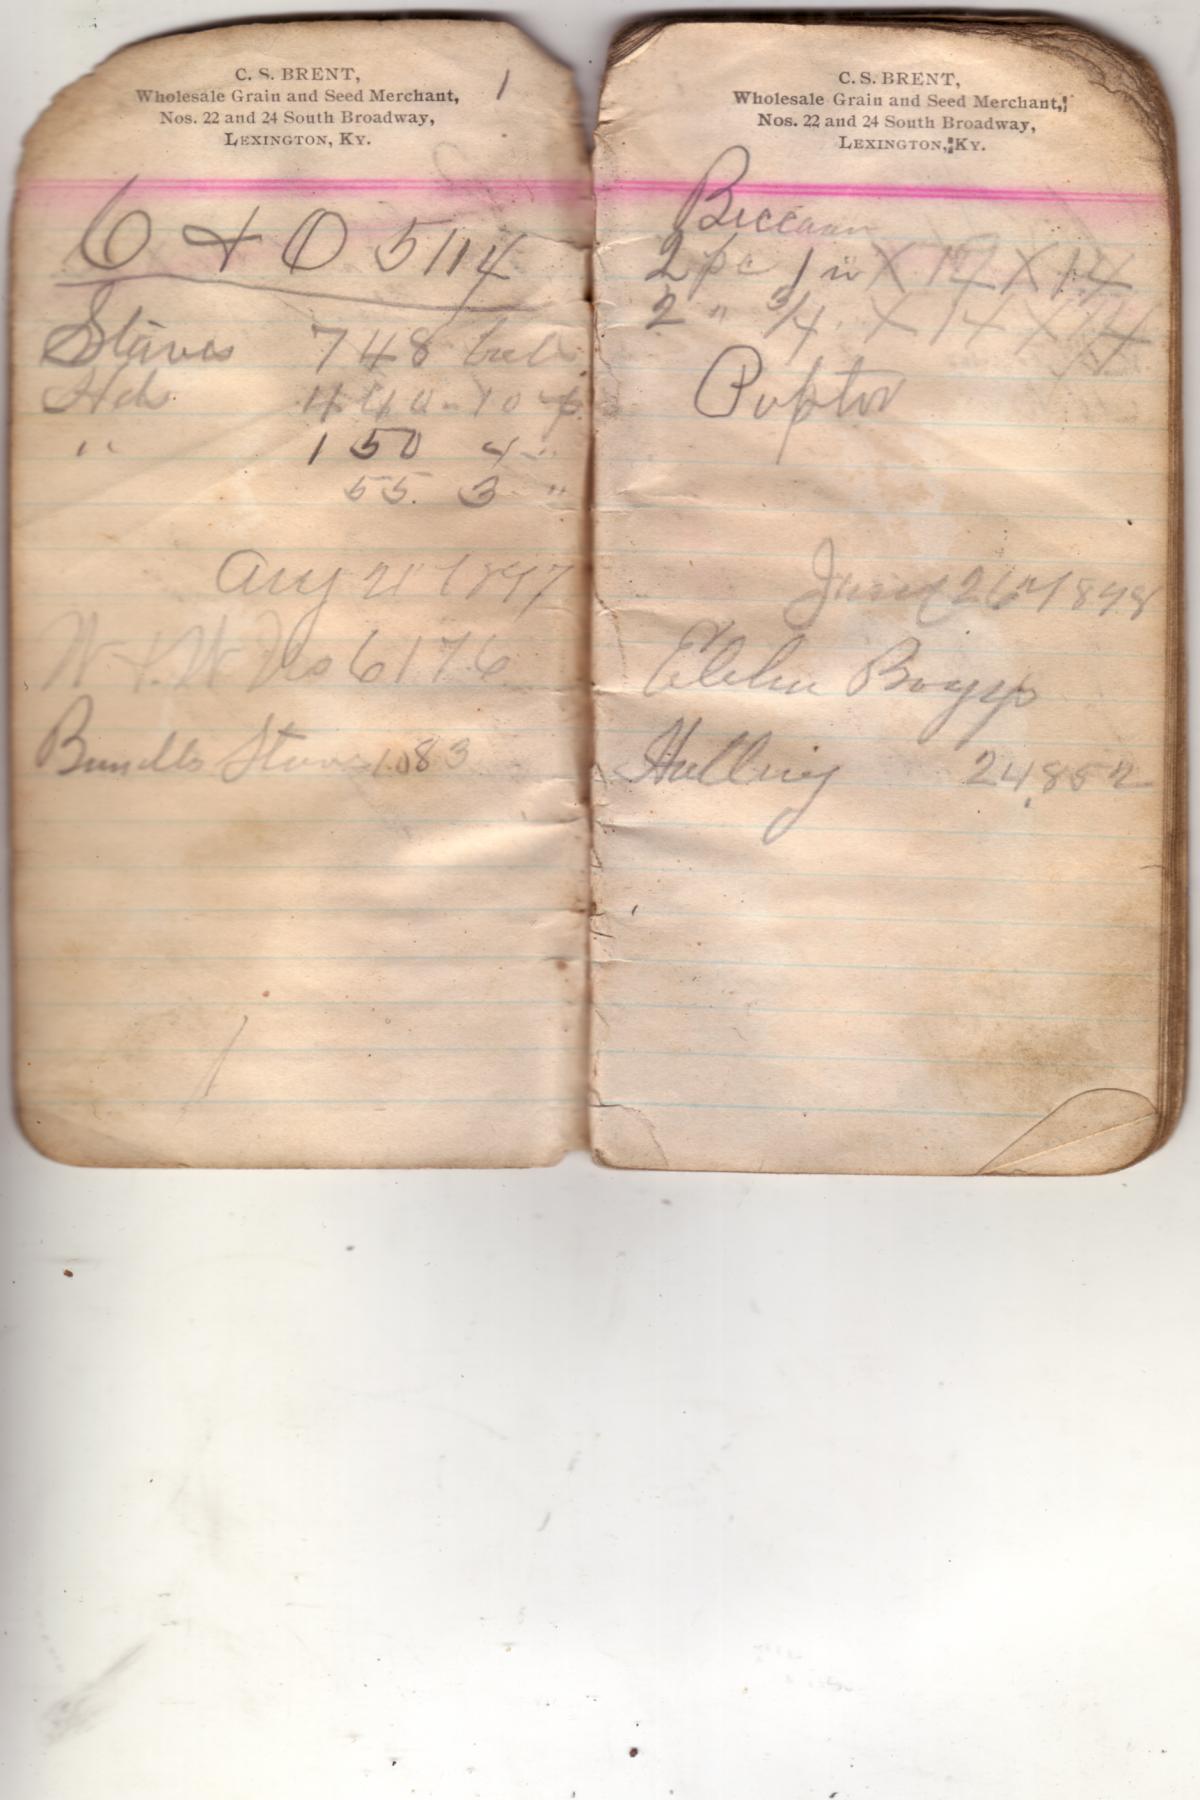 C. S. BRENT,
Wholesale Grain and Seed Merchant,
Nos. 22 and 24 South Broadway,
LEXINGTON, KY.
1
C + O 5114
Staves 748
Hds 440 - 10
" 150 4 "
55. 3 "
Aug 21 1897
N + W No 6176
Bundls Staves 1083
C. S. BRENT,
Wholesale Grain and Seed Merchant,
Nos. 22 and 24 South Broadway,
LEXINGTON, KY.
2 pc 1 in X 12 X 14
2 " 3/4 X 14 X 14
26 1898
Boggs
Hulling 24,852